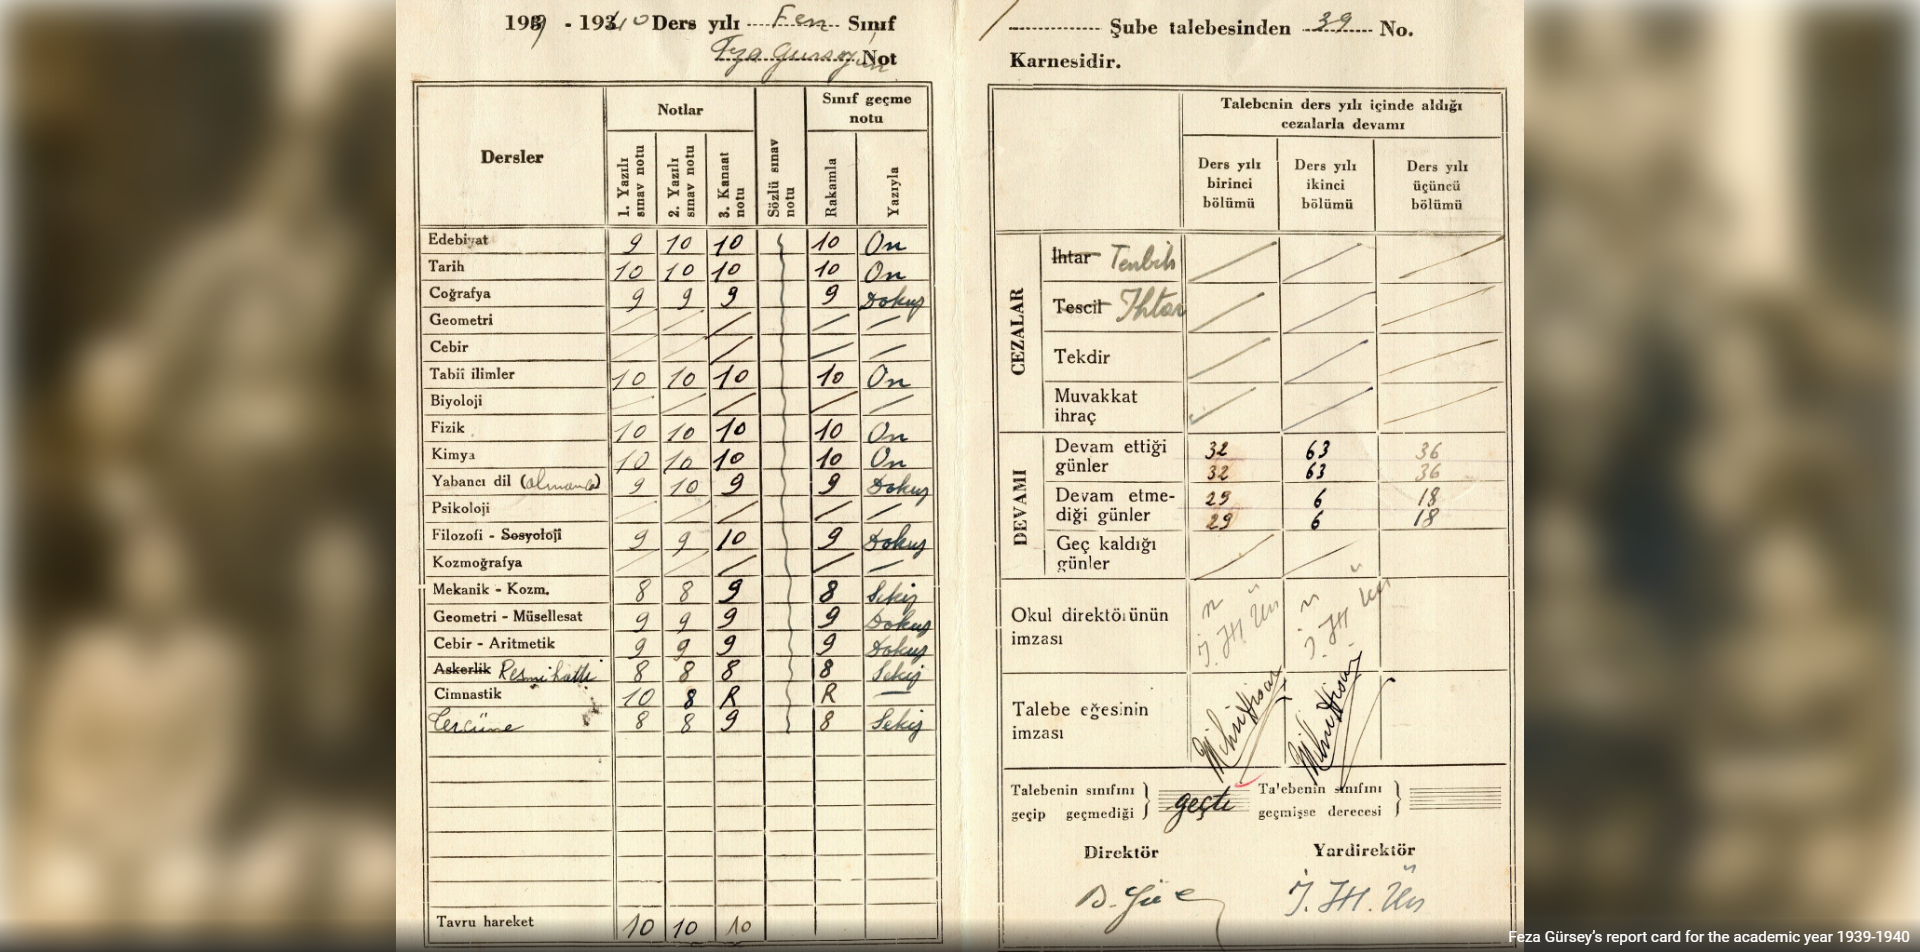 1939 - 1940 Ders yılı Fen Sınıf
Feza Gürsey'in Not
Şube talebesinden 39 No.
Karnesidir.
Dersler
Notlar
Sınıf geçme notu
1. Yazılı sınav notu
2. Yazılı sınav notu
3. Kanaat notu
Sözlü sınav notu
Rakamla
Yazıyla
Edebiyat 9 10 10 10 On
Tarih 10 10 10 10 On
Coğrafya 9 9 9 9 Dokuz
Geometri
Cebir
Tabiî ilimler 10 10 10 10 On
Biyoloji
Fizik 10 10 10 10 On
Kimya 10 10 10 10 On
Yabancı dil (almanca) 9 10 9 9 Dokuz
Psikoloji
Filozofi - Sosyoloji 9 9 10 9 Dokuz
Kozmoğrafya
Mekanik - Kozm. 8 8 9 8 Sekiz
Geometri - Müsellesat 9 9 9 9 Dokuz
Cebir - Aritmetik 9 9 9 9 Dokuz
Askerlik Resmi hattı 8 8 8 8 Sekiz
Cimnastik 10 8 R R
Tercüme 8 8 9 8 Sekiz
Tavru hareket 10 10 10
Talebenin ders yılı içinde aldığı
cezalarla devamı
Ders yılı birinci bölümü
Ders yılı ikinci bölümü
Ders yılı üçüncü bölümü
CEZALAR
İhtar Tenbih
Tescil İhtar
Tekdir
Muvakkat
ihraç
DEVAMI
Devam ettiği 32 63 36
günler 32 63 36
Devam etme- 29 6 18
diği günler 29 6 18
Geç kaldığı
günler
Okul direktörünün
imzası
İ. H. Ün İ. H. Ün
Talebe eğesinin
imzası
Talebenin sınıfını
geçip geçmediği
geçti
Talebenin sınıfını
geçmişse derecesi
Direktör
Yardirektör
İ. H. Ün
Feza Gürsey's report card for the academic year 1939-1940